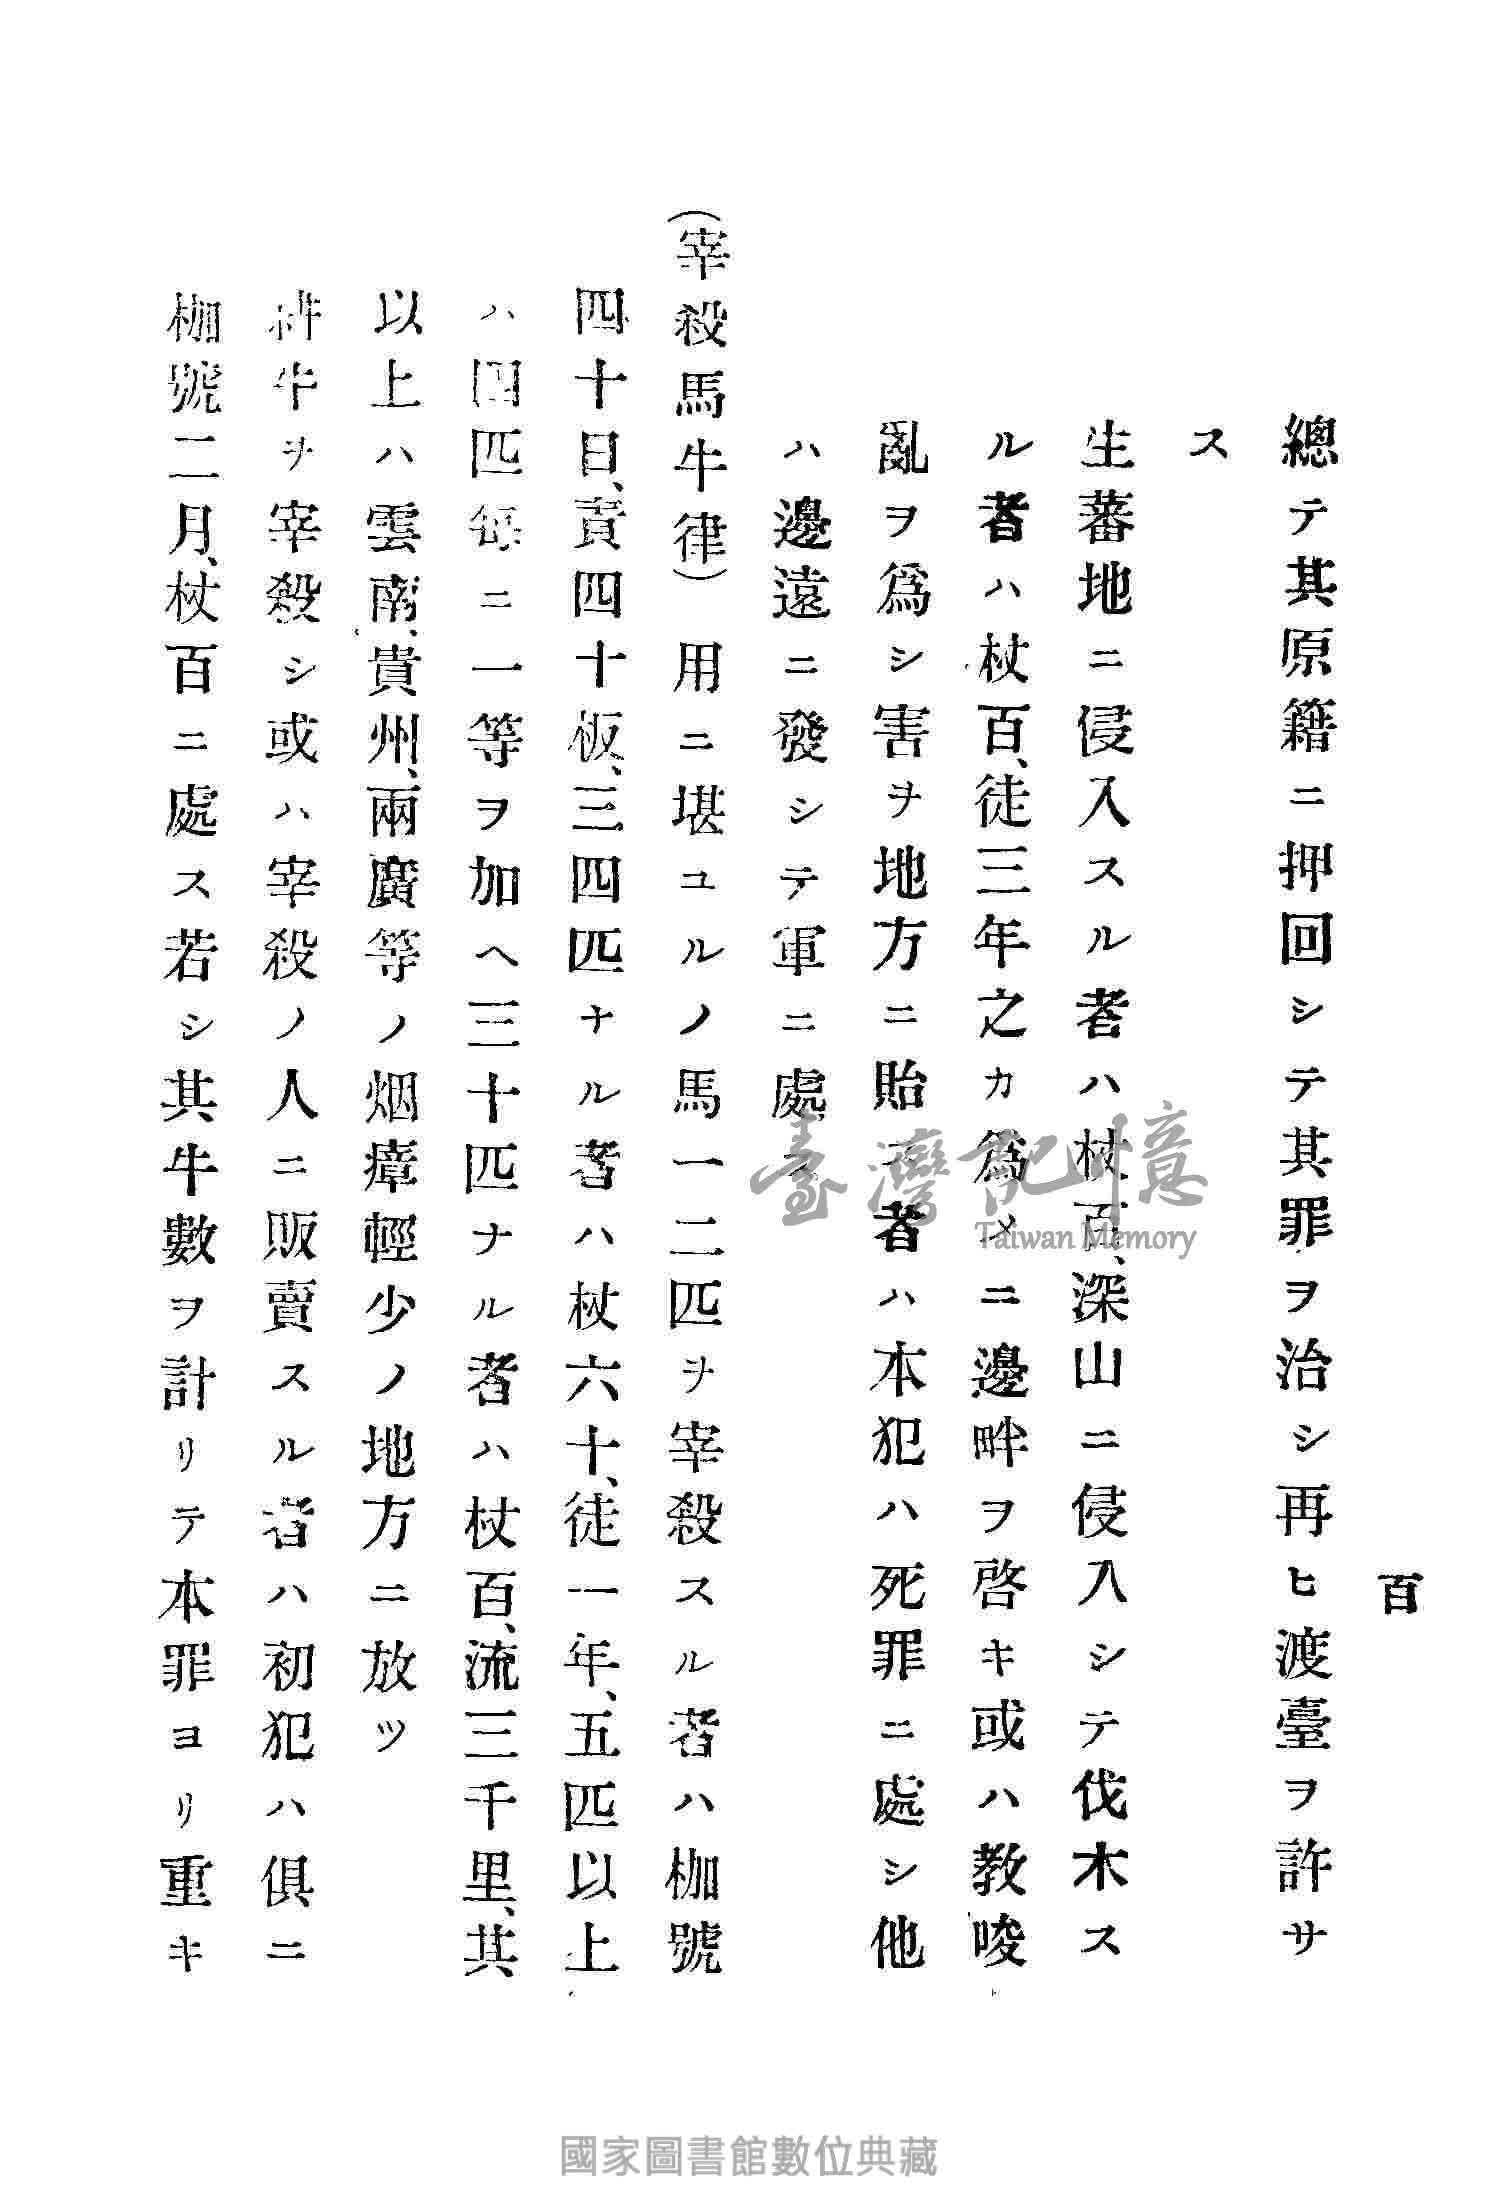 百
總テ其原籍ニ押回シテ其罪ヲ治シ再ヒ渡臺ヲ許サ
ス
生蕃地ニ侵入スル者ハ杖百、深山ニ侵入シテ伐木ス
ル者ハ杖百、徒三年之カ爲メニ邊畔ヲ啓キ或ハ教唆
亂ヲ爲シ害ヲ地方ニ貽ス者ハ本犯ハ死罪ニ處シ他
ハ邊遠ニ發シテ軍ニ處ス
(宰殺馬牛律)　用ニ堪ユルノ馬一二匹ヲ宰殺スル者ハ枷號
四十日、責四十板、三四匹ナル者ハ杖六十、徒一年、五匹以上
ハ四匹每ニ一等ヲ加ヘ三十匹ナル者ハ杖百、流三千里、其
以上ハ雲南、貴州、兩廣等ノ烟瘴輕少ノ地方ニ放ツ
耕牛ヲ宰殺シ或ハ宰殺ノ人ニ販賣スル者ハ初犯ハ俱ニ
枷號二月、杖百ニ處ス若シ其牛數ヲ計リテ本罪ヨリ重キ
臺灣記憶
Taiwan Memory
國家圖書館數位典藏